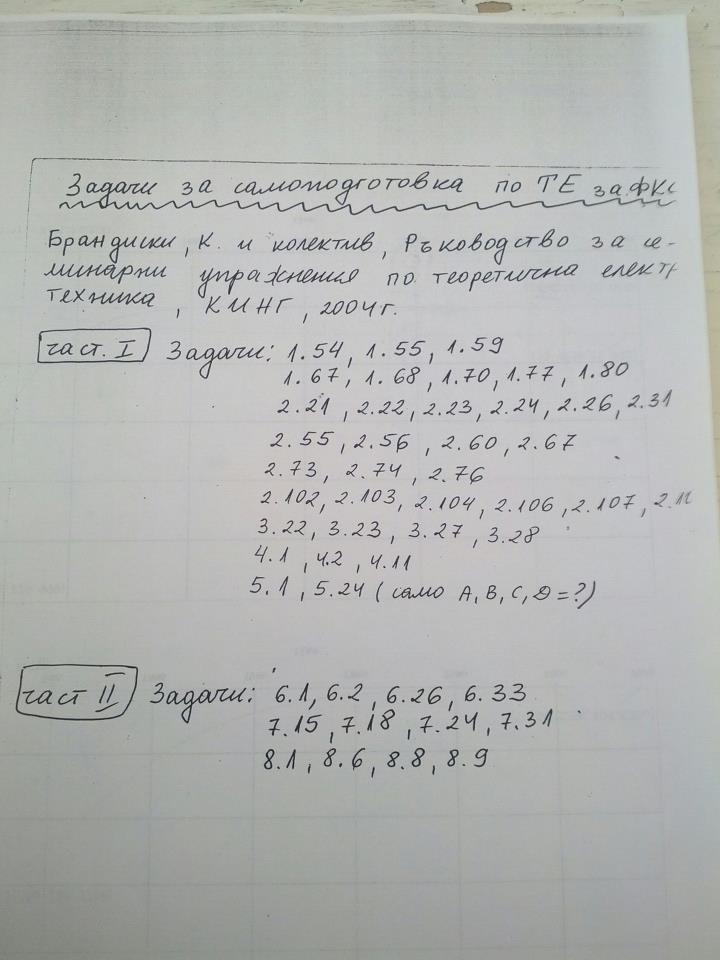 Задачи за самоподготовка по ТЕ за ФК
Брандиски, К. и колектив, Ръководство за се-
минарни упражнения по теоретична елект
техника, КИНГ, 2004г.
част. I Задачи: 1.54, 1.55, 1.59
1.67, 1.68, 1.70, 1.77, 1.80
2.21, 2.22, 2.23, 2.24, 2.26, 2.31
2.55, 2.56, 2.60, 2.67
2.73, 2.74, 2.76
2.102, 2.103, 2.104, 2.106, 2.107,
3.22, 3.23, 3.27, 3.28
4.1, 4.2, 4.11
5.1, 5.24 (само A, B, C, D = ?)
част II Задачи: 6.1, 6.2, 6.26, 6.33
7.15, 7.18, 7.24, 7.31
8.1, 8.6, 8.8, 8.9